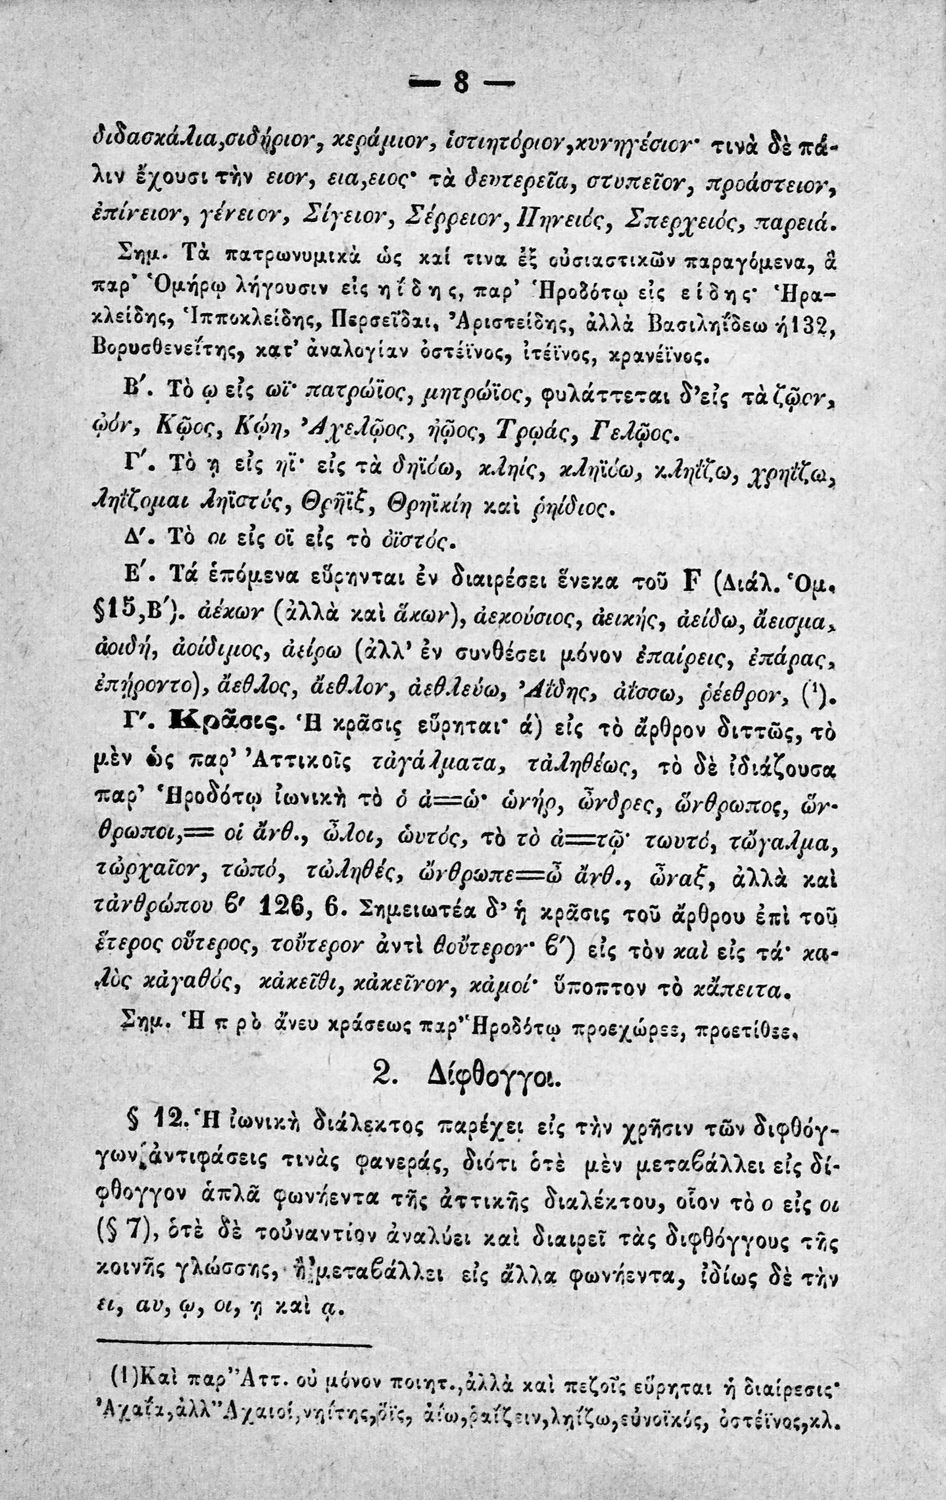 — 8 —
διδασκάλια,σιδήριον, κεράμιον, ἱστιητόριον,κυνηγέσιον· τινὰ δὲ πά-
λιν ἔχουσι τὴν ειον, εια,ειος· τὰ δευτερεῖα, στυπεῖον, προάστειον,
ἐπίνειον, γένειον, Σίγειον, Σέρρειον, Πηνειός, Σπερχειός, παρειά.
Σημ. Τὰ πατρωνυμικὰ ὡς καί τινα ἐξ οὐσιαστικῶν παραγόμενα, ἃ
παρ' Ὁμήρῳ λήγουσιν εἰς ηΐδης, παρ' Ἡροδότῳ εἰς είδης· Ἡρα-
κλείδης, Ἱπποκλείδης, Περσεῖδαι, Ἀριστείδης, ἀλλὰ Βασιληΐδεω ή132,
Βορυσθενεΐτης, κατ' ἀναλογίαν ὀστέϊνος, ἰτέϊνος, κρανέϊνος.
Β'. Τὸ ῳ εἰς ωϊ· πατρώϊος, μητρώϊος, φυλάττεται δ'εἰς τὰ ζῷον,
ᾠόν, Κῷος, Κῴη, Ἀχελῷος, ἠῷος, Τρῳάς, Γελῷος.
Γ'. Τὸ ῃ εἰς ηϊ· εἰς τὰ δηϊόω, κληΐς, κληϊόω, κληΐζω, χρηΐζω,
ληΐζομαι ληϊστύς, Θρῆϊξ, Θρηϊκίη καὶ ῥηίδιος.
Δ'. Τὸ οι εἰς οϊ εἰς τὸ ὀϊστός.
Ε'. Τά ἑπόμενα εὕρηνται ἐν διαιρέσει ἕνεκα τοῦ F (Διάλ. Ὁμ.
§15,Β'). ἀέκων (ἀλλὰ καὶ ἄκων), ἀεκούσιος, ἀεικής, ἀείδω, ἄεισμα,
ἀοιδή, ἀοίδιμος, ἀείρω (ἀλλ' ἐν συνθέσει μόνον ἐπαίρεις, ἐπάρας,
ἐπήροντο), ἄεθλος, ἄεθλον, ἀεθλεύω, Ἀΐδης, ἀΐσσω, ῥέεθρον, (¹).
Γ'. Κρᾶσις. Ἡ κρᾶσις εὕρηται· ά) εἰς τὸ ἄρθρον διττῶς, τὸ
μὲν ὡς παρ' Ἀττικοῖς τἀγάλματα, τἀληθέως, τὸ δὲ ἰδιάζουσα
παρ' Ἡροδότῳ ἰωνικὴ τὸ ὁ ἀ=ὡ· ὡνήρ, ὦνδρες, ὥνθρωπος, ὥν-
θρωποι,= οἱ ἄνθ., ὦλοι, ὡυτός, τὸ τὸ ἀ=τῷ· τωυτό, τὤγαλμα,
τὠρχαῖον, τὠπό, τὠληθές, ὤνθρωπε=ὦ ἄνθ., ὦναξ, ἀλλὰ καὶ
τἀνθρώπου β' 126, 6. Σημειωτέα δ' ἡ κρᾶσις τοῦ ἄρθρου ἐπὶ τοῦ
ἕτερος οὕτερος, τοὔτερον ἀντὶ θοὔτερον· β') εἰς τὸν καὶ εἰς τά· κα-
λὸς κἀγαθός, κἀκεῖθι, κἀκεῖνον, κἀμοί· ὕποπτον τὸ κἄπειτα.
Σημ. Ἡ πρὸ ἄνευ κράσεως παρ' Ἡροδότῳ προεχώρεε, προετίθεε.
2. Δίφθογγοι.
§ 12. Ἡ ἰωνικὴ διάλεκτος παρέχει εἰς τὴν χρῆσιν τῶν διφθόγ-
γων ἀντιφάσεις τινὰς φανεράς, διότι ὁτὲ μὲν μεταβάλλει εἰς δί-
φθογγον ἁπλᾶ φωνήεντα τῆς ἀττικῆς διαλέκτου, οἷον τὸ ο εἰς οι
(§ 7), ὁτὲ δὲ τοὐναντίον ἀναλύει καὶ διαιρεῖ τὰς διφθόγγους τῆς
κοινῆς γλώσσης, ἢ μεταβάλλει εἰς ἄλλα φωνήεντα, ἰδίως δὲ τὴν
ει, αυ, ῳ, οι, ῃ καὶ ᾳ.
(1)Καὶ παρ' Ἀττ. οὐ μόνον ποιητ.,ἀλλὰ καὶ πεζοῖς εὕρηται ἡ διαίρεσις·
Ἀχαΐα,ἀλλ' Ἀχαιοί,νηΐτης,ὄϊς, ἀΐω,ῥαΐζειν,ληΐζω,εὐνοϊκός, ὀστέϊνος,κλ.